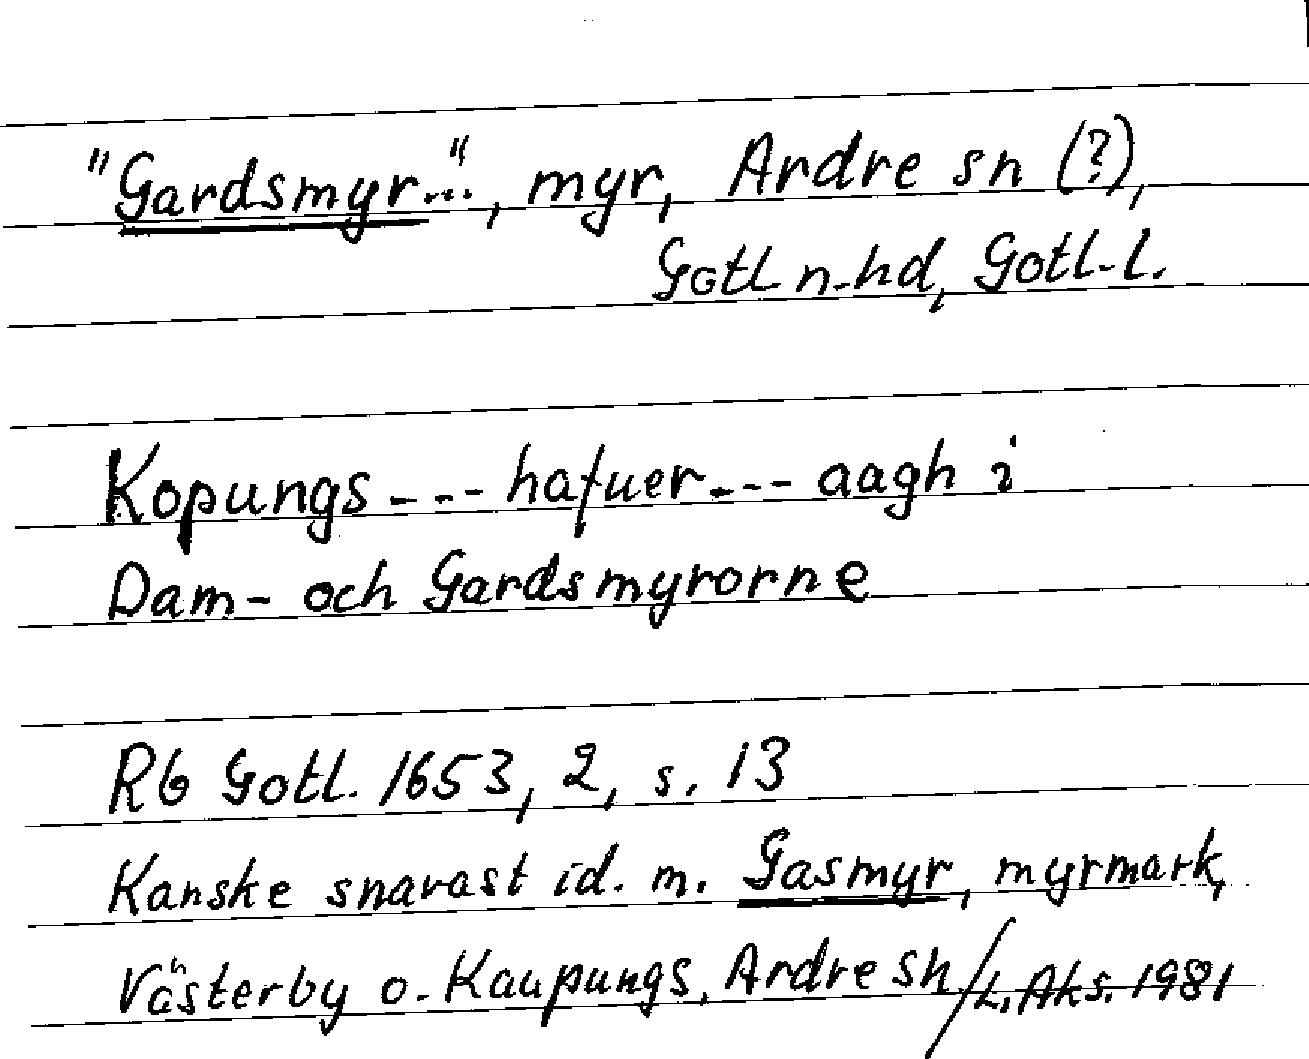 "Gardsmyr...", myr, Ardre sn (?),
Gotl n. hd, Gotl. l.
Kopungs --- hafuer --- aagh i
Dam- och Gardsmyrorne
Rb Gotl. 1653, 2, s. 13
Kanske snarast id. m. Gasmyr, myrmark,
Västerby o. Kaupungs, Ardre sn./L. Aks. 1981